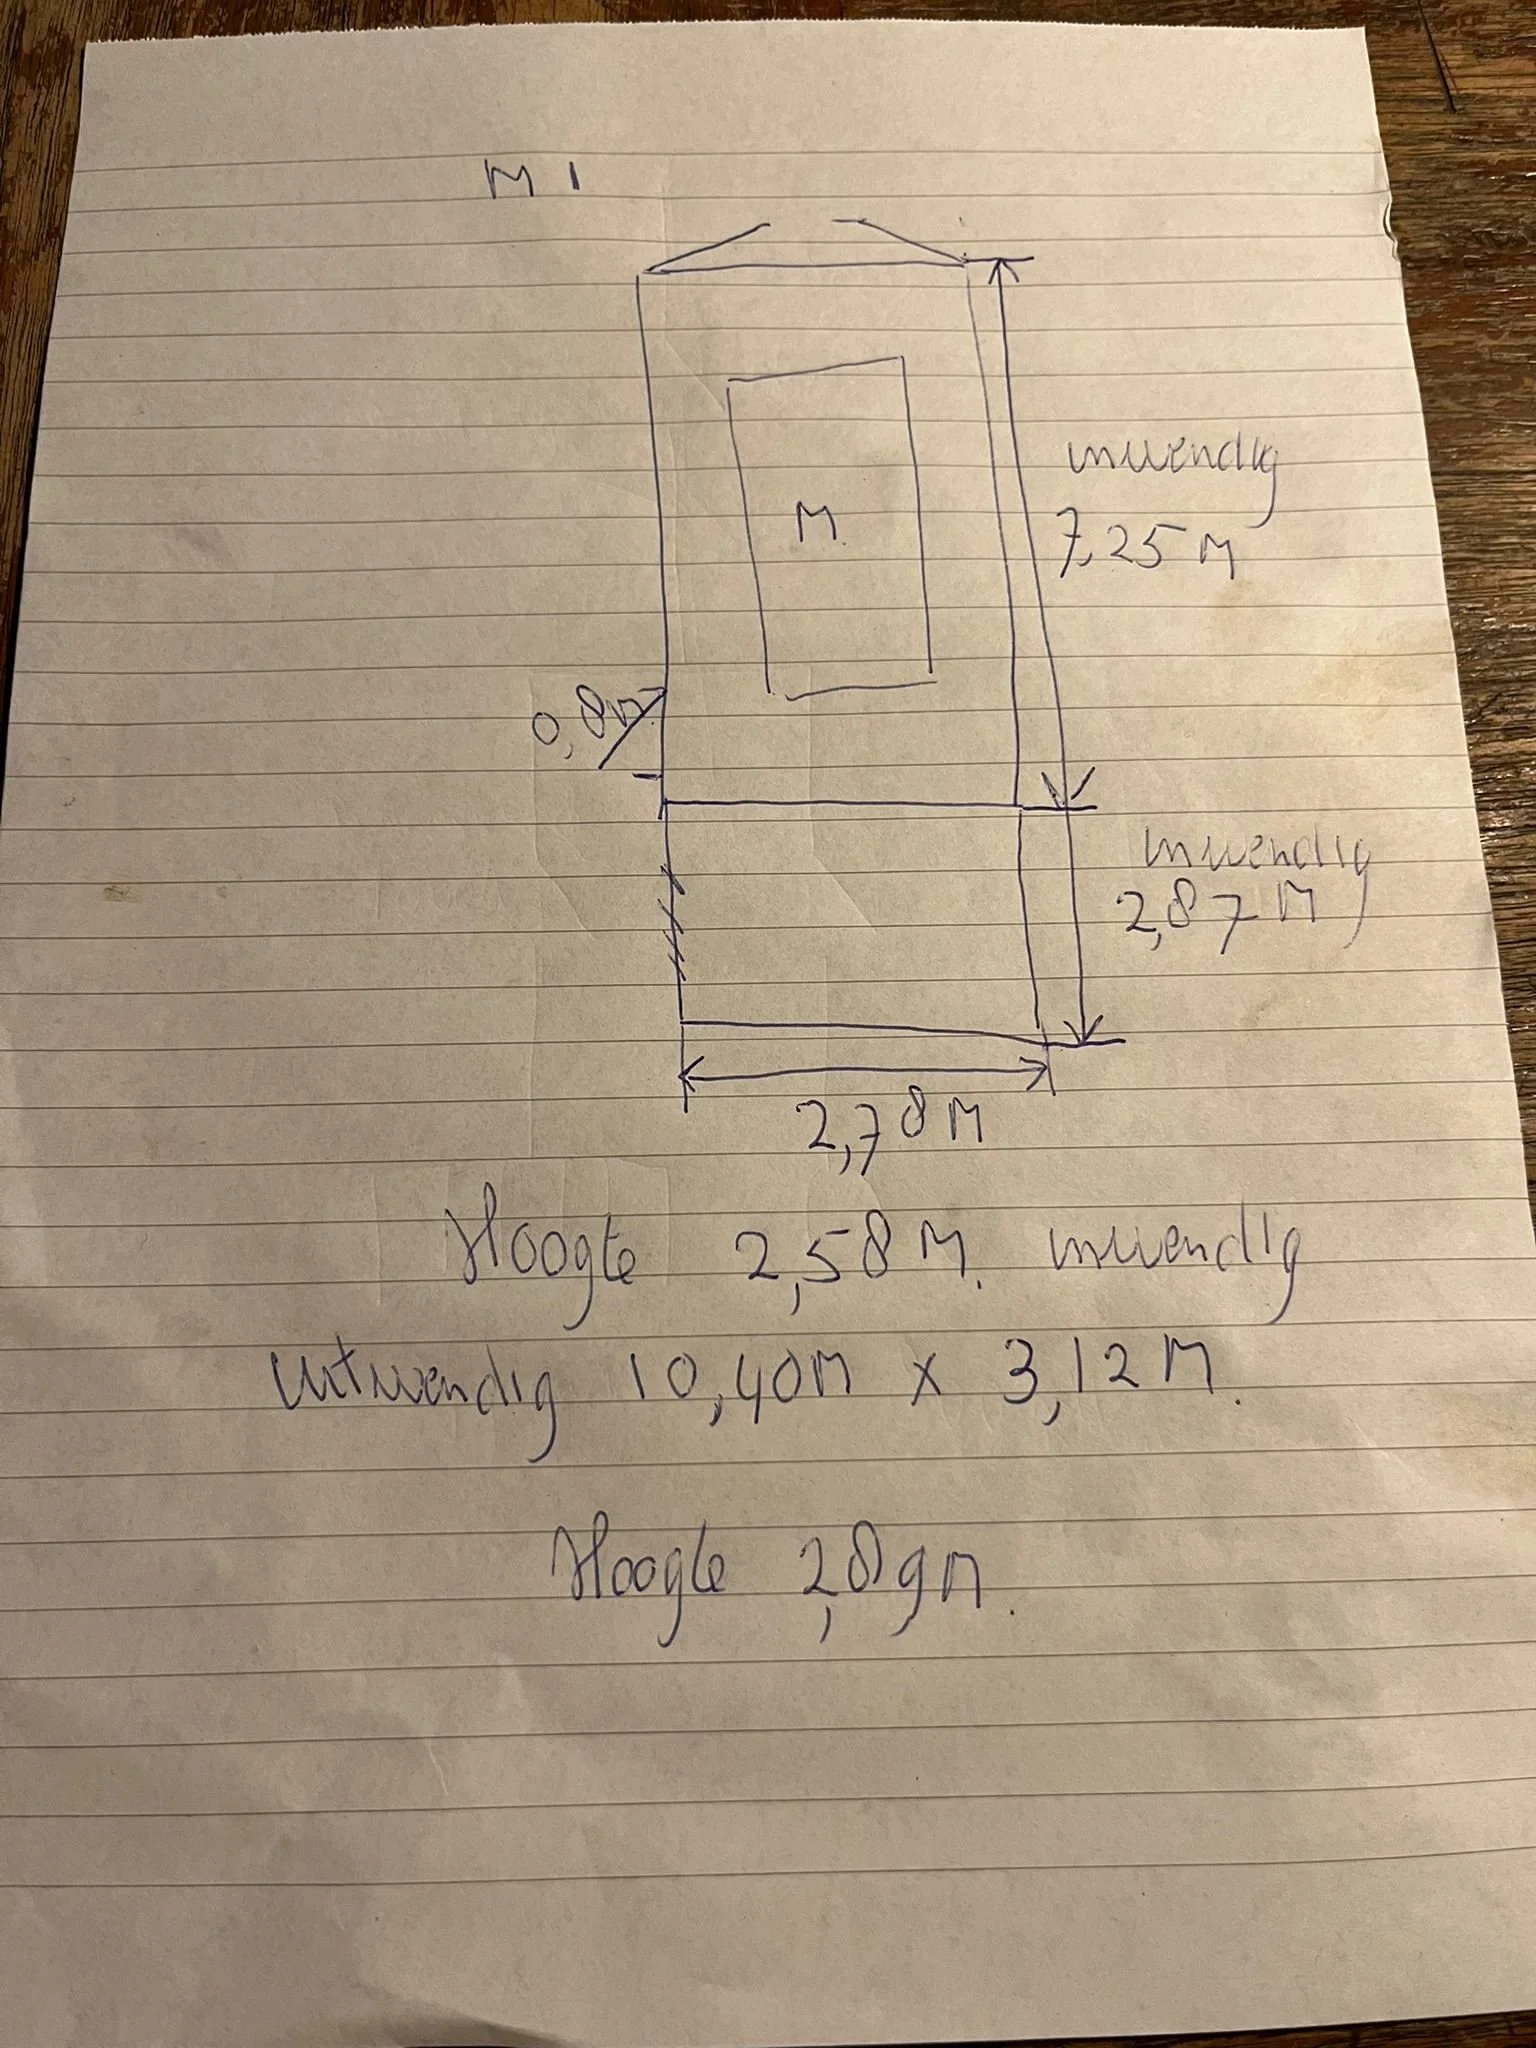 M 1
inwendig
7,25 M
M
0,8m
inwendig
2,87 M
2,78 M
Hoogte 2,58 M. inwendig
Uitwendig 10,40M x 3,12 M.
Hoogte 2,89m.